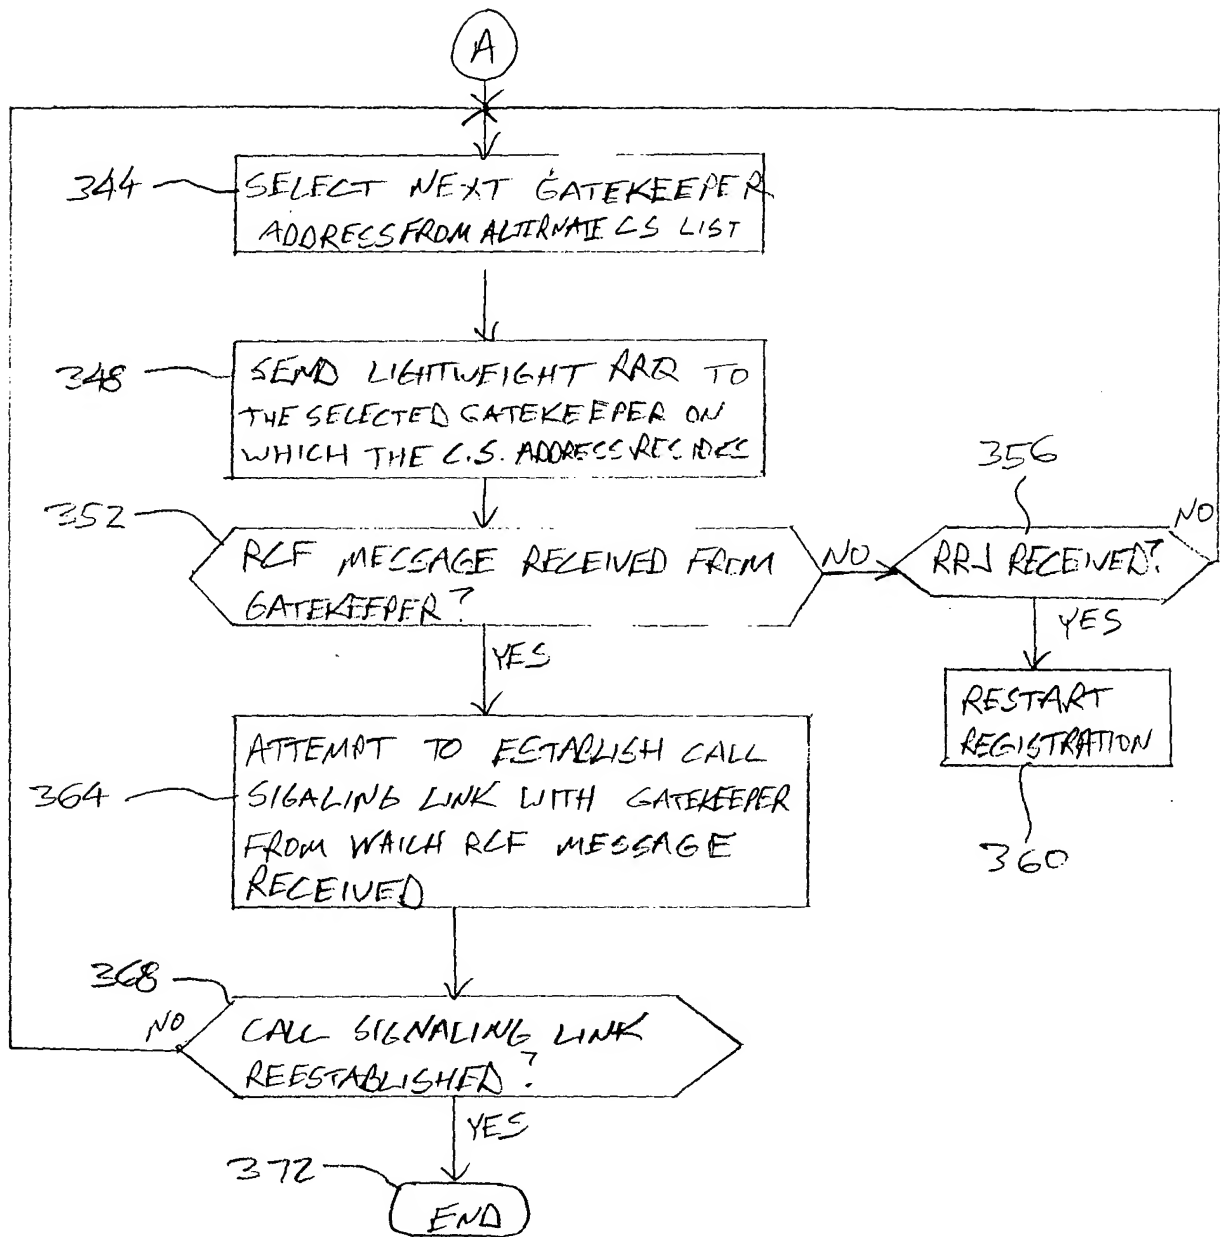 A
344
SELECT NEXT GATEKEEPER
ADDRESS FROM ALTERNATE CS LIST
348
SEND LIGHTWEIGHT RRQ TO
THE SELECTED GATEKEEPER ON
WHICH THE C.S. ADDRESS RESIDES
352
RCF MESSAGE RECEIVED FROM
GATEKEEPER?
NO
356
RRJ RECEIVED?
NO
YES
RESTART
REGISTRATION
360
YES
364
ATTEMPT TO ESTABLISH CALL
SIGALING LINK WITH GATEKEEPER
FROM WHICH RCF MESSAGE
RECEIVED
368
NO
CALL SIGNALING LINK
REESTABLISHED?
YES
372
END